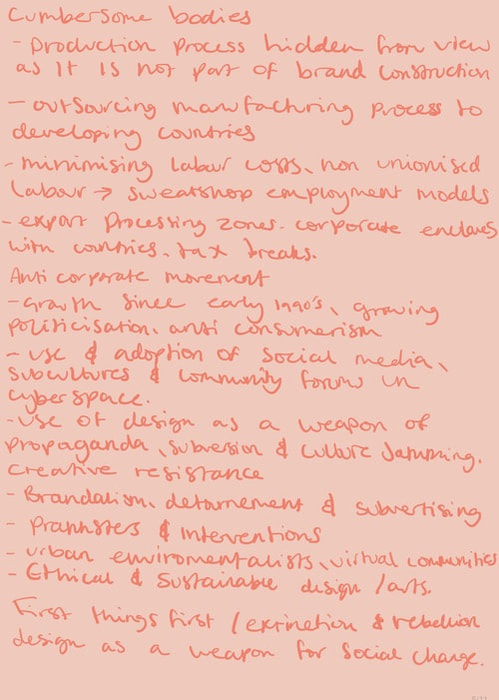 Cumbersome bodies
- Production process hidden from view
as it is not part of brand construction
- outsourcing manufacturing process to
developing countries
- minimising labour costs, non unionised
labour → sweatshop employment models
- export processing zones. corporate enclaves
with countries. tax breaks.
Anti corporate movement
- Growth since early 1990's, growing
politicisation. anti consumerism
- use & adoption of social media,
subcultures & community forums in
cyberspace.
- use of design as a weapon of
propaganda, subversion & culture Jamming.
Creative resistance
- Brandalism, detornement & subvertising
- Pranksters & Interventions
- urban enviromentalists, virtual communities
- Ethical & Sustainable design /arts.
First things first / extinction & rebellion
design as a weapon for social change.